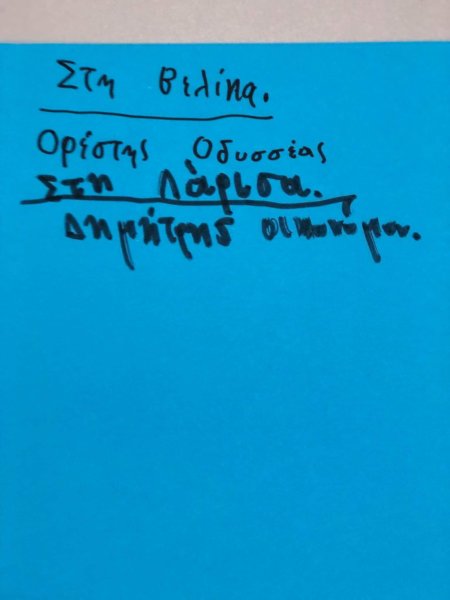 Στη Βελίκα.
Ορέστης Οδυσσέας
Στη Λάρισα.
Δημήτρης οικονόμου.